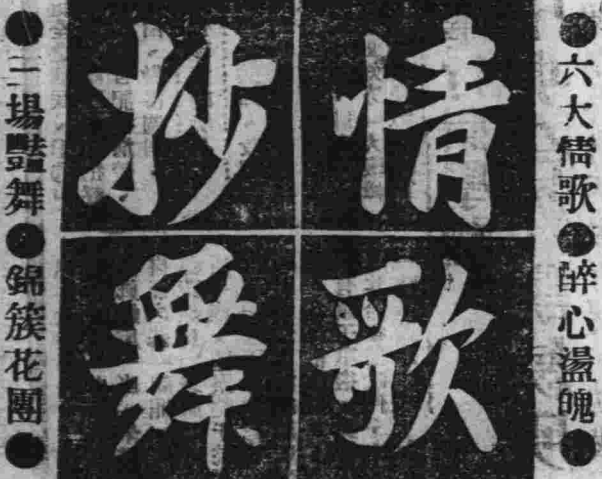 ●六大情歌●醉心盪魄●
情歌
抄舞
●三場豔舞●錦簇花團●